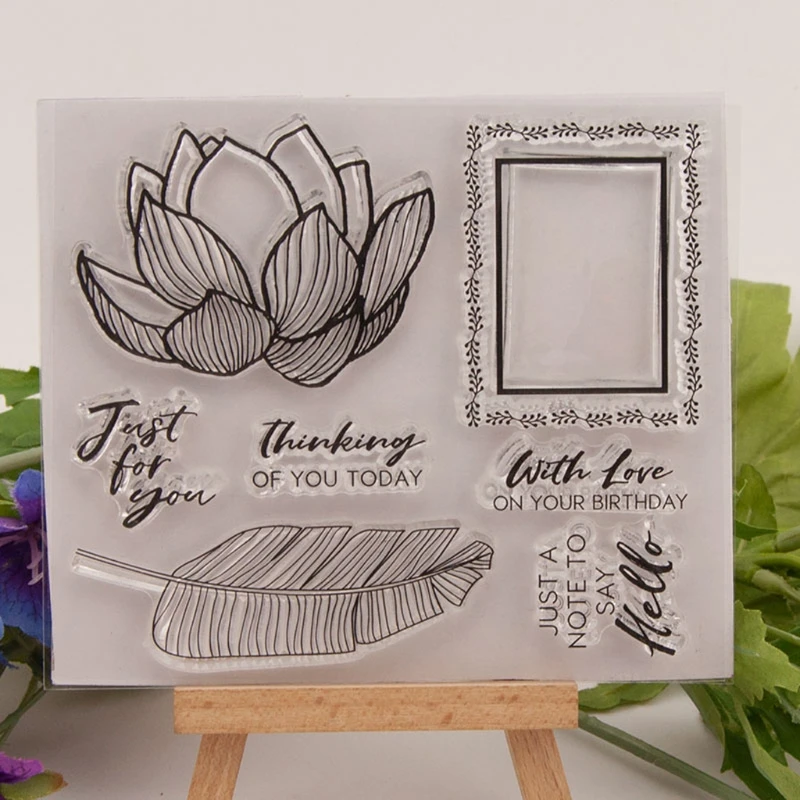 Just
for
you
Thinking
OF YOU TODAY
With Love
ON YOUR BIRTHDAY
JUST A
NOTE TO
SAY
Hello